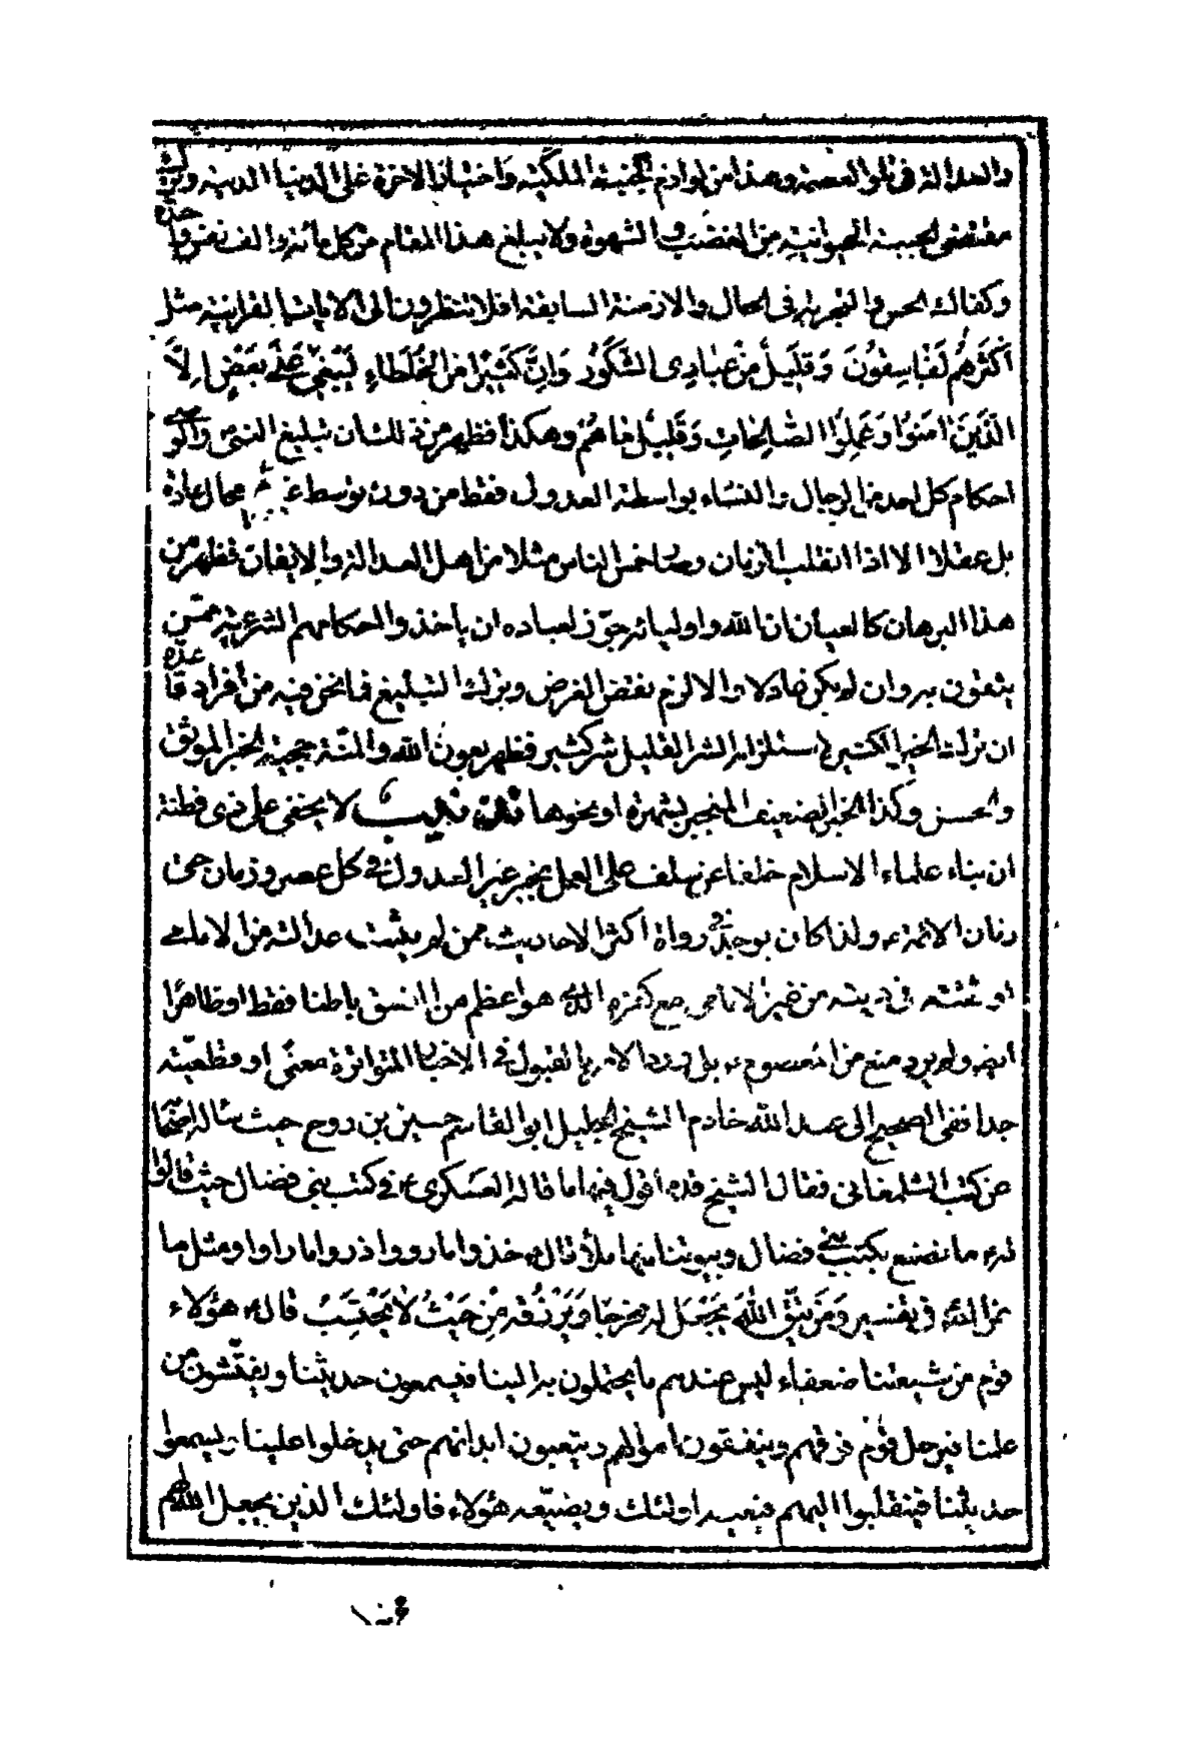 والعدالة في تلو العصمة وهذا من لوازم الجنبة الملكية واختيار الاخرة على الدنيا الدنية وترك
مقتضى الجنبة الحيوانية من الغضب والشهوة ولا يبلغ هذا المقام من كل مائة والف نفس واحدة
وكفاك الحس والتجربة في الحال والازمنة السابقة افلا تنظرون الى الايات القرانية مثل
اَكْثَرَهُمْ لَفَاسِقُونَ وَقَلِيلٌ مِنْ عِبَادِيَ الشَّكُورُ وَاِنَّ كَثِيرًا مِنَ الْخُلَطَاءِ لَيَبْغِي بَعْضُهُمْ عَلَى بَعْضٍ اِلَّا
الَّذِينَ اٰمَنُوا وَعَمِلُوا الصَّالِحَاتِ وَقَلِيلٌ مَا هُمْ وهكذا فظهر من ذلك ان تبليغ النبي
احكام كل احد من الرجال والنساء بواسطة العدول فقط من دون توسط محال عادة
بل عقلا الا اذا انقلب الزمان وصار خمس الناس مثلا من اهل العدالة والايقان فظهر من
هذا البرهان كالعيان ان الله واوليائه جوّز لعباده ان ياخذوا احكامهم الشرعية ممّن
يثقون به وان لم يكن عادلا والا لزم نقض الغرض وترك التبليغ فما نحن فيه من افراد قاعدة
ان ترك الخير الكثير لاستلزامه الشر القليل شر كثير فظهر بعون الله والمنّة حجية الخبر الموثق
والحسن وكذا الخبر الضعيف المنجبر بشهرة او نحوها لا يخفى على ذى فطنة
ان بناء علماء الاسلام خلفا عن سلف على العمل بخبر غير العدول في كل عصر وزمان حتى
زمان الائمة ع ولذا كان يوجد في رواة اكثر الاحاديث ممن لم يثبت عدالته من الامامي
او ثقته في دينه من غير الامامي مع كفره الذي هو اعظم من الفسق باطنا فقط او ظاهرًا
ايضا ولم يرد منع من المعصوم ع بل ورد الامر بالقبول في الاخبار المتواترة معنى او قطعيته
جدا ففي الصحيح الى عبد الله خادم الشيخ الجليل ابو القاسم حسين بن روح حيث ساله اصحابنا
عن كتب الشلمغاني فقال الشيخ قده اقول فيها ما قاله العسكرى ع في كتب بني فضال حيث قالوا
له ع ما نصنع بكتب بني فضال وبيوتنا منها ملأ قال ع خذوا ما رووا وذروا ما راوا ومثل ما
عن الله في تفسير وَمَنْ يَتَّقِ اللّٰهَ يَجْعَلْ لَهُ مَخْرَجًا وَيَرْزُقْهُ مِنْ حَيْثُ لَا يَحْتَسِبُ قال ع هؤلاء
قوم من شيعتنا ضعفاء ليس عندهم ما يتحملون به الينا فيسمعون حديثنا ويفتّشون من
علمنا فيرحل قوم فوقهم وينفقون اموالهم ويتعبون ابدانهم حتى يدخلوا علينا ويسمعوا
حديثنا فينقلبوا اليهم فيعيه اولئك ويضيّعه هؤلاء فاولئك الذين يجعل الله لهم